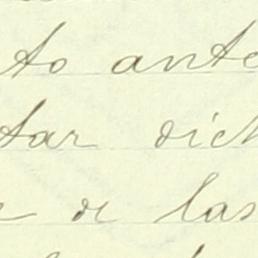 to ante
tar dich
de las